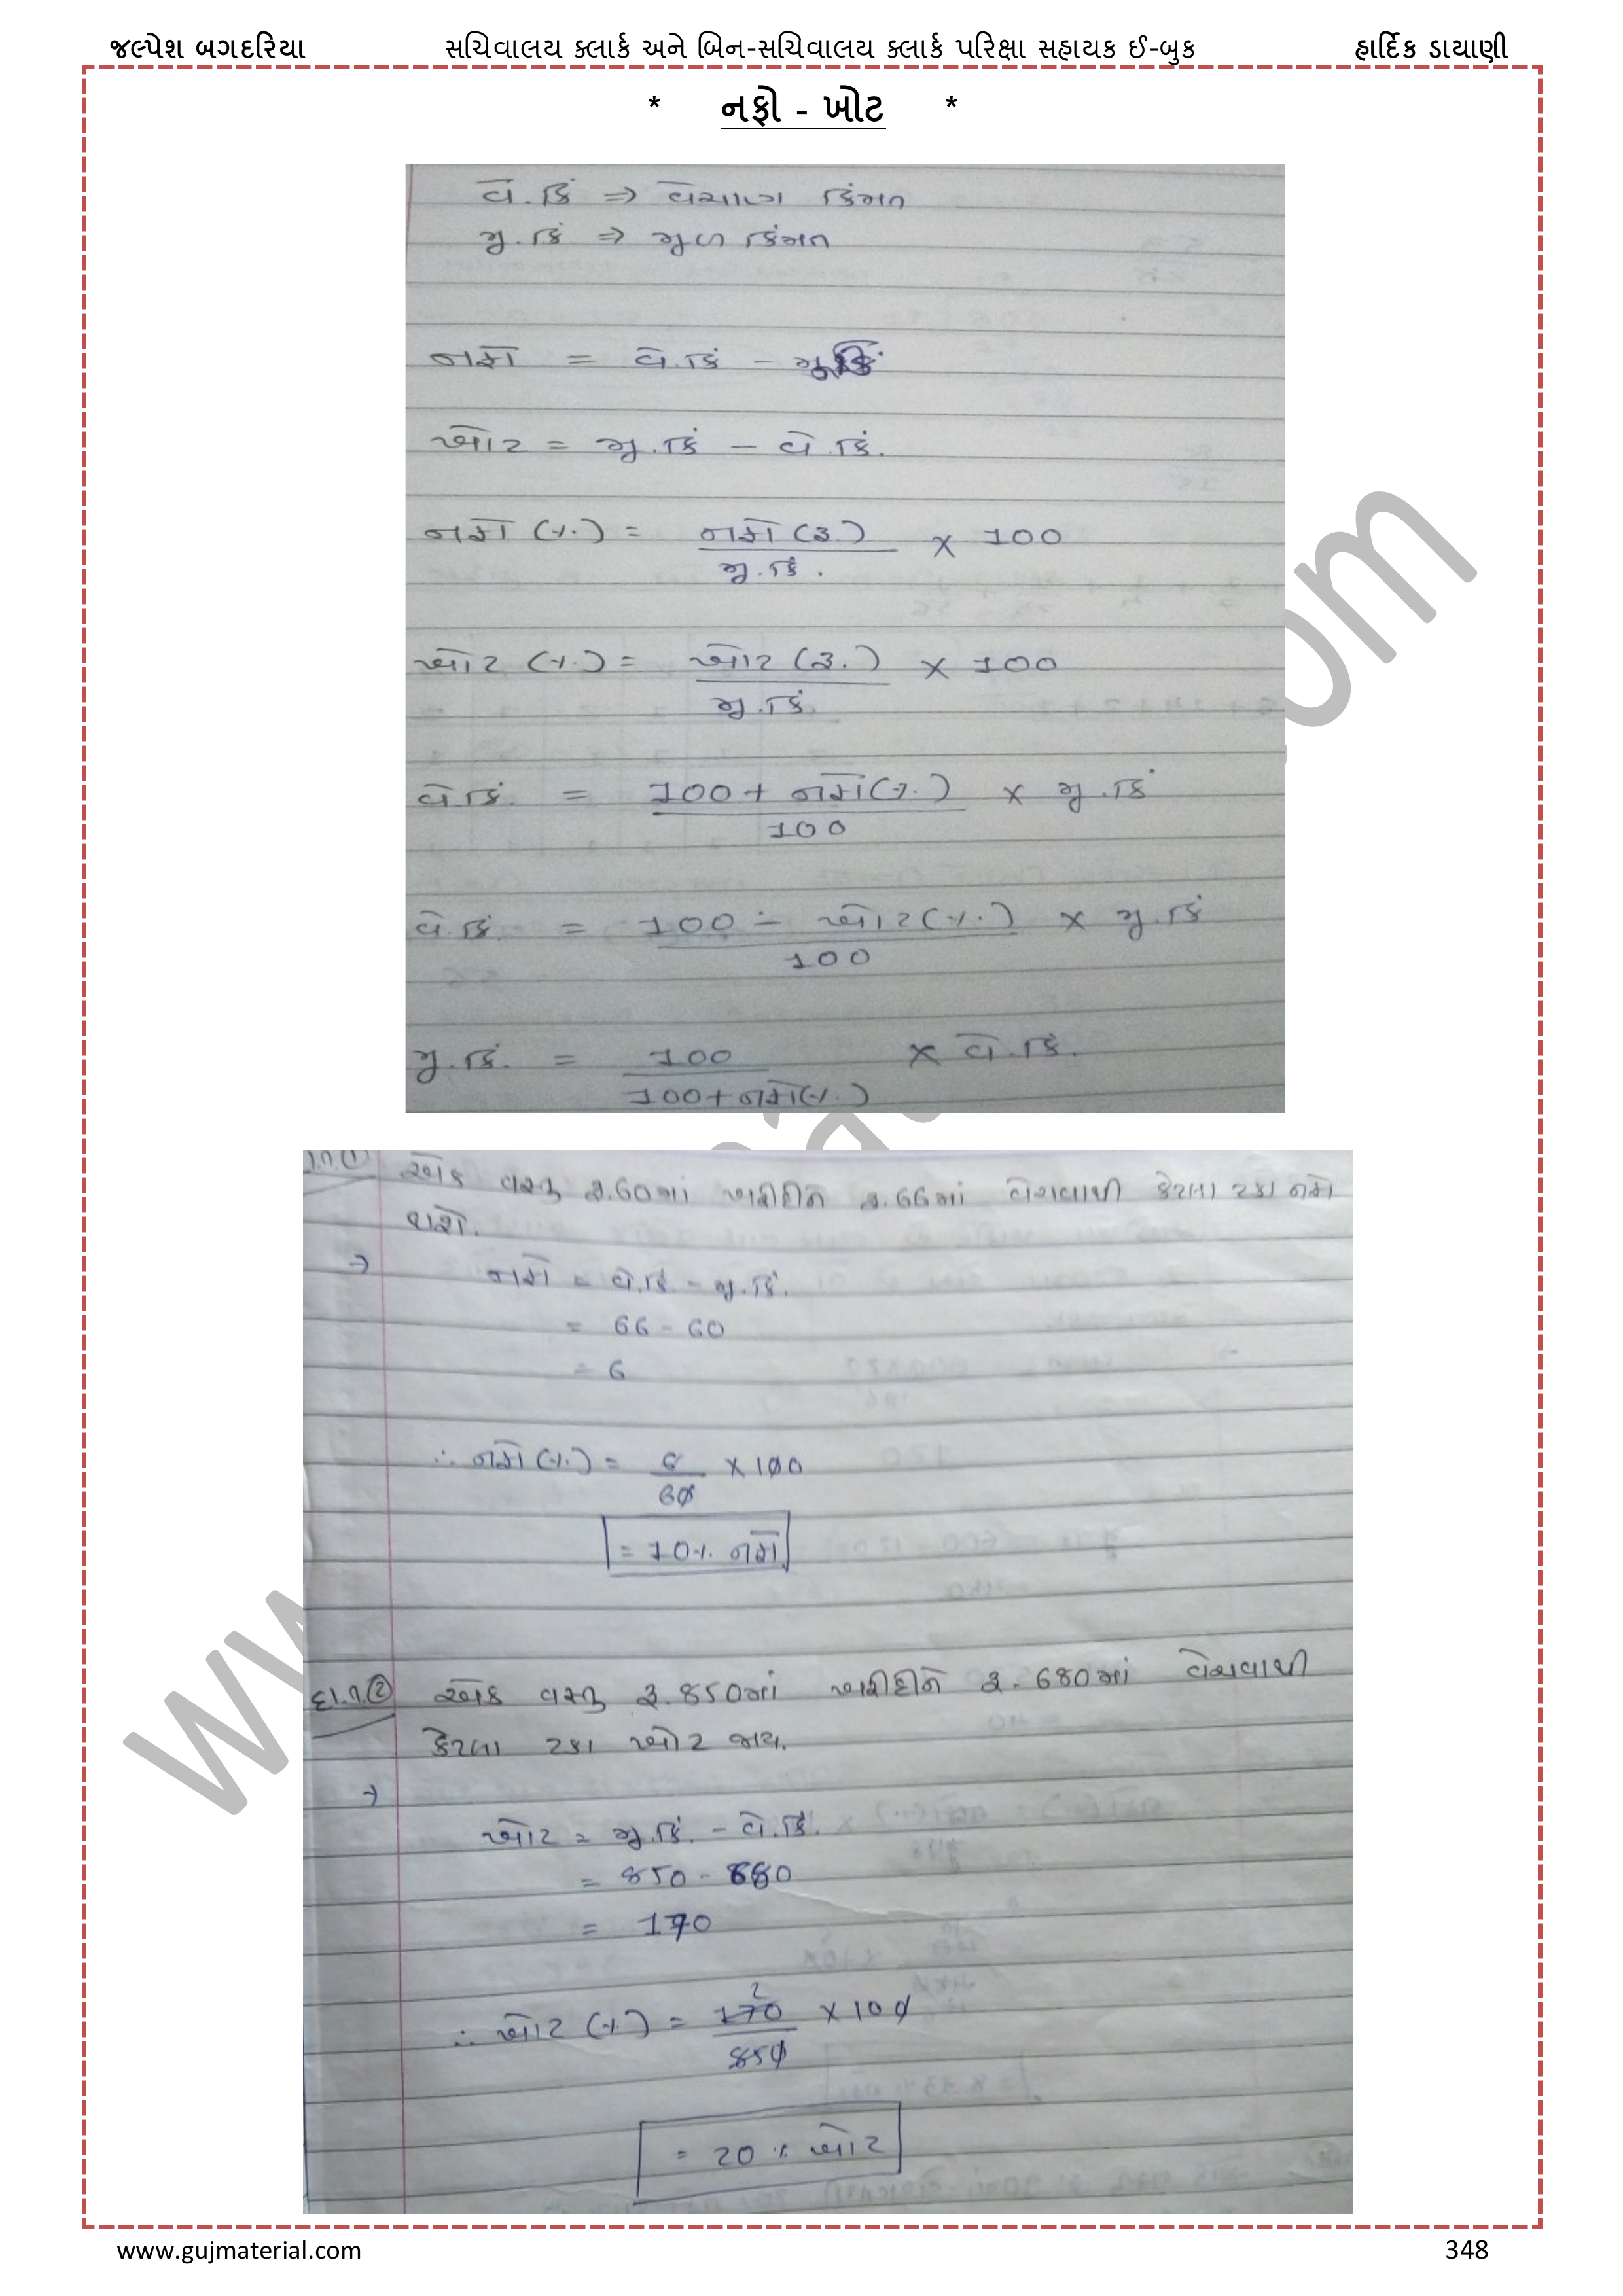 જલ્પેશ બગદરિયા સચિવાલય ક્લાર્ક અને બિન-સચિવાલય ક્લાર્ક પરિક્ષા સહાયક ઈ-બુક હાર્દિક ડાયાણી
* નફો - ખોટ *
વે.કિં ⇒ વેચાણ કિંમત
મુ.કિં ⇒ મુળ કિંમત
નફો = વે.કિં - મુ.કિં.
ખોટ = મુ.કિં - વે.કિં.
નફો (%) = નફો (રૂ.) / મુ.કિં. × 100
ખોટ (%) = ખોટ (રૂ.) / મુ.કિં. × 100
વે.કિં. = 100 + નફો (%) / 100 × મુ.કિં
વે.કિં. = 100 - ખોટ (%) / 100 × મુ.કિં
મુ.કિં. = 100 / 100 + નફો (%) × વે.કિં.
એક વસ્તુ રૂ.60માં ખરીદીને રૂ.66માં વેચવાથી કેટલા ટકા નફો
થશે.
→ નફો = વે.કિં - મુ.કિં.
= 66 - 60
= 6
∴ નફો (%) = 6 / 60 × 100
= 10% નફો
દા.ત.② એક વસ્તુ રૂ.850માં ખરીદીને રૂ.680માં વેચવાથી
કેટલા ટકા ખોટ જાય.
→ ખોટ = મુ.કિં. - વે.કિં.
= 850 - 680
= 170
2
∴ ખોટ (%) = 170 / 850 × 100
= 20 % ખોટ
www.gujmaterial.com 348